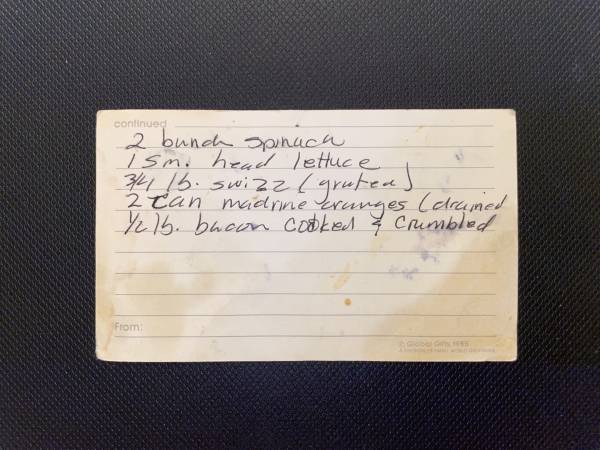 continued
2 bunch spinach
1 sm. head lettuce
3/4 lb. swizz (grated)
2 can madrine oranges (drained
1/2 lb. bacon cooked & crumbled
From:
© Global Gifts 1985